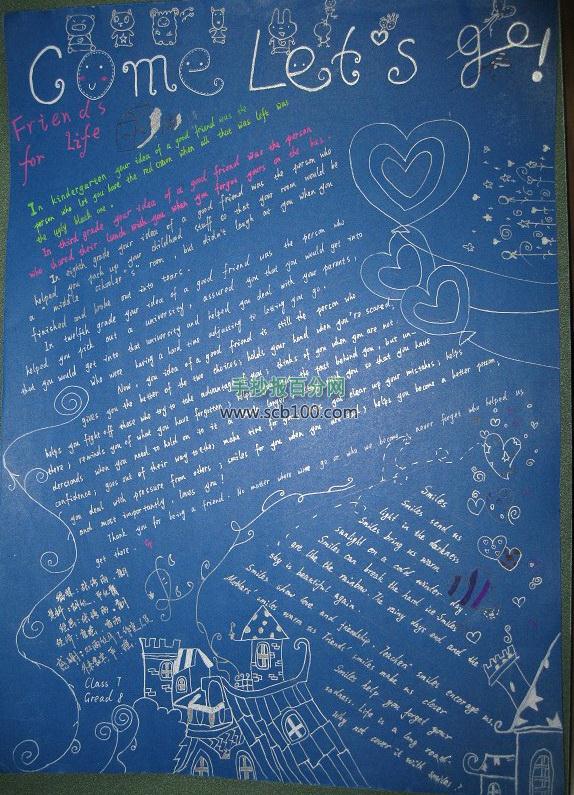 Come Let's go!
Friends
for Life
In kindergarten your idea of a good friend was the
person who let you have the red crayon when all that was left was
the ugly black one.
In third grade your idea of a good friend was the person
who shared their lunch with you when you forgot yours on the bus.
In eighth grade your idea of a good friend was the person who
helped you pack up your childhood stuff so that your room would be
a "middle schooler's" room, but didn't laugh at you when you
finished and broke out into tears.
In twelfth grade your idea of a good friend was the person who
helped you pick out a university, assured you that you would get into
that you would get into that university and helped you deal with your parents,
who were having a hard time adjusting to letting you go.
Now, your idea of a good friend is still the person who
gives you the better of the two choices; holds your hand when you're scared
helps you fight off those who try to take advantage of you; thinks of you when you are not
there; reminds you of what you have forgotten; helps you put the past behind you, but un-
derstands when you need to hold on to it a little longer; stays with you so that you have
confidence; goes out of their way to make time for you; helps you clear up your mistakes; helps
you deal with pressure from others; smiles for you when you are sad; helps you become a better person;
and most importantly loves you!
Thank you for being a friend. No matter where wine go or who we become, never forget who helped us
get there.
手抄报百分网
www.scb100.com
Class 7
Gread 8
Smiles
Smiles send us
light in the darkness
Smiles bring us warm
sunlight on a cold winter day
Smiles can break the hard ice Smiles
are like the rainbow. The rainy days end and the
sky is beautiful again.
Smiles show love and friendship. Teachers' smiles encourage us
Mothers' smiles warm us Friends' smiles make us closer
Smiles help you forget your
sadness. Life is a long road.
Why not cover it with smiles?